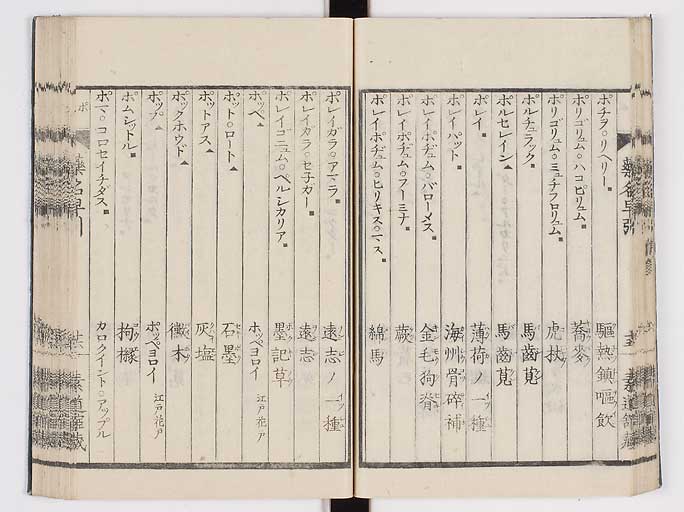 ポチラ○リヘリー■ 驅熱鎮嘔飲
ポリゴリュム○ハコピリュム■ 蕎麥
ポリゴリュム○ミュチフロリュム■ 虎扙
ポルチュラック■ 馬齒莧
ポルセレイン▲ 馬齒莧
ポレイ■ 薄荷ノ一種
ポレイハット■ 海州骨碎補
ポレイポヂュム○バローメス■ 金毛狗脊
ポレイポヂュム○フーミナ■ 蕨
ポレイポヂュム○ヒリキス○マス■ 綿馬
ポレイガラ○アマラ■ 遠志ノ一種
ポレイガラ○セ子ガー■ 遠志
ポレイゴニュム○ペルシカリア■ 墨記草
ポッペ▲ ホッペヨロイ 江戸花戸
ポット○ロート▲ 石墨
ポットアス▲ 灰塩
ポックホウド▲ 癥木
ポップ▲ ポッペヨロイ 江戸花戸
ポムシットル■ 拘櫞
ポマ○コロセイチダス■ カロクイント○アップル